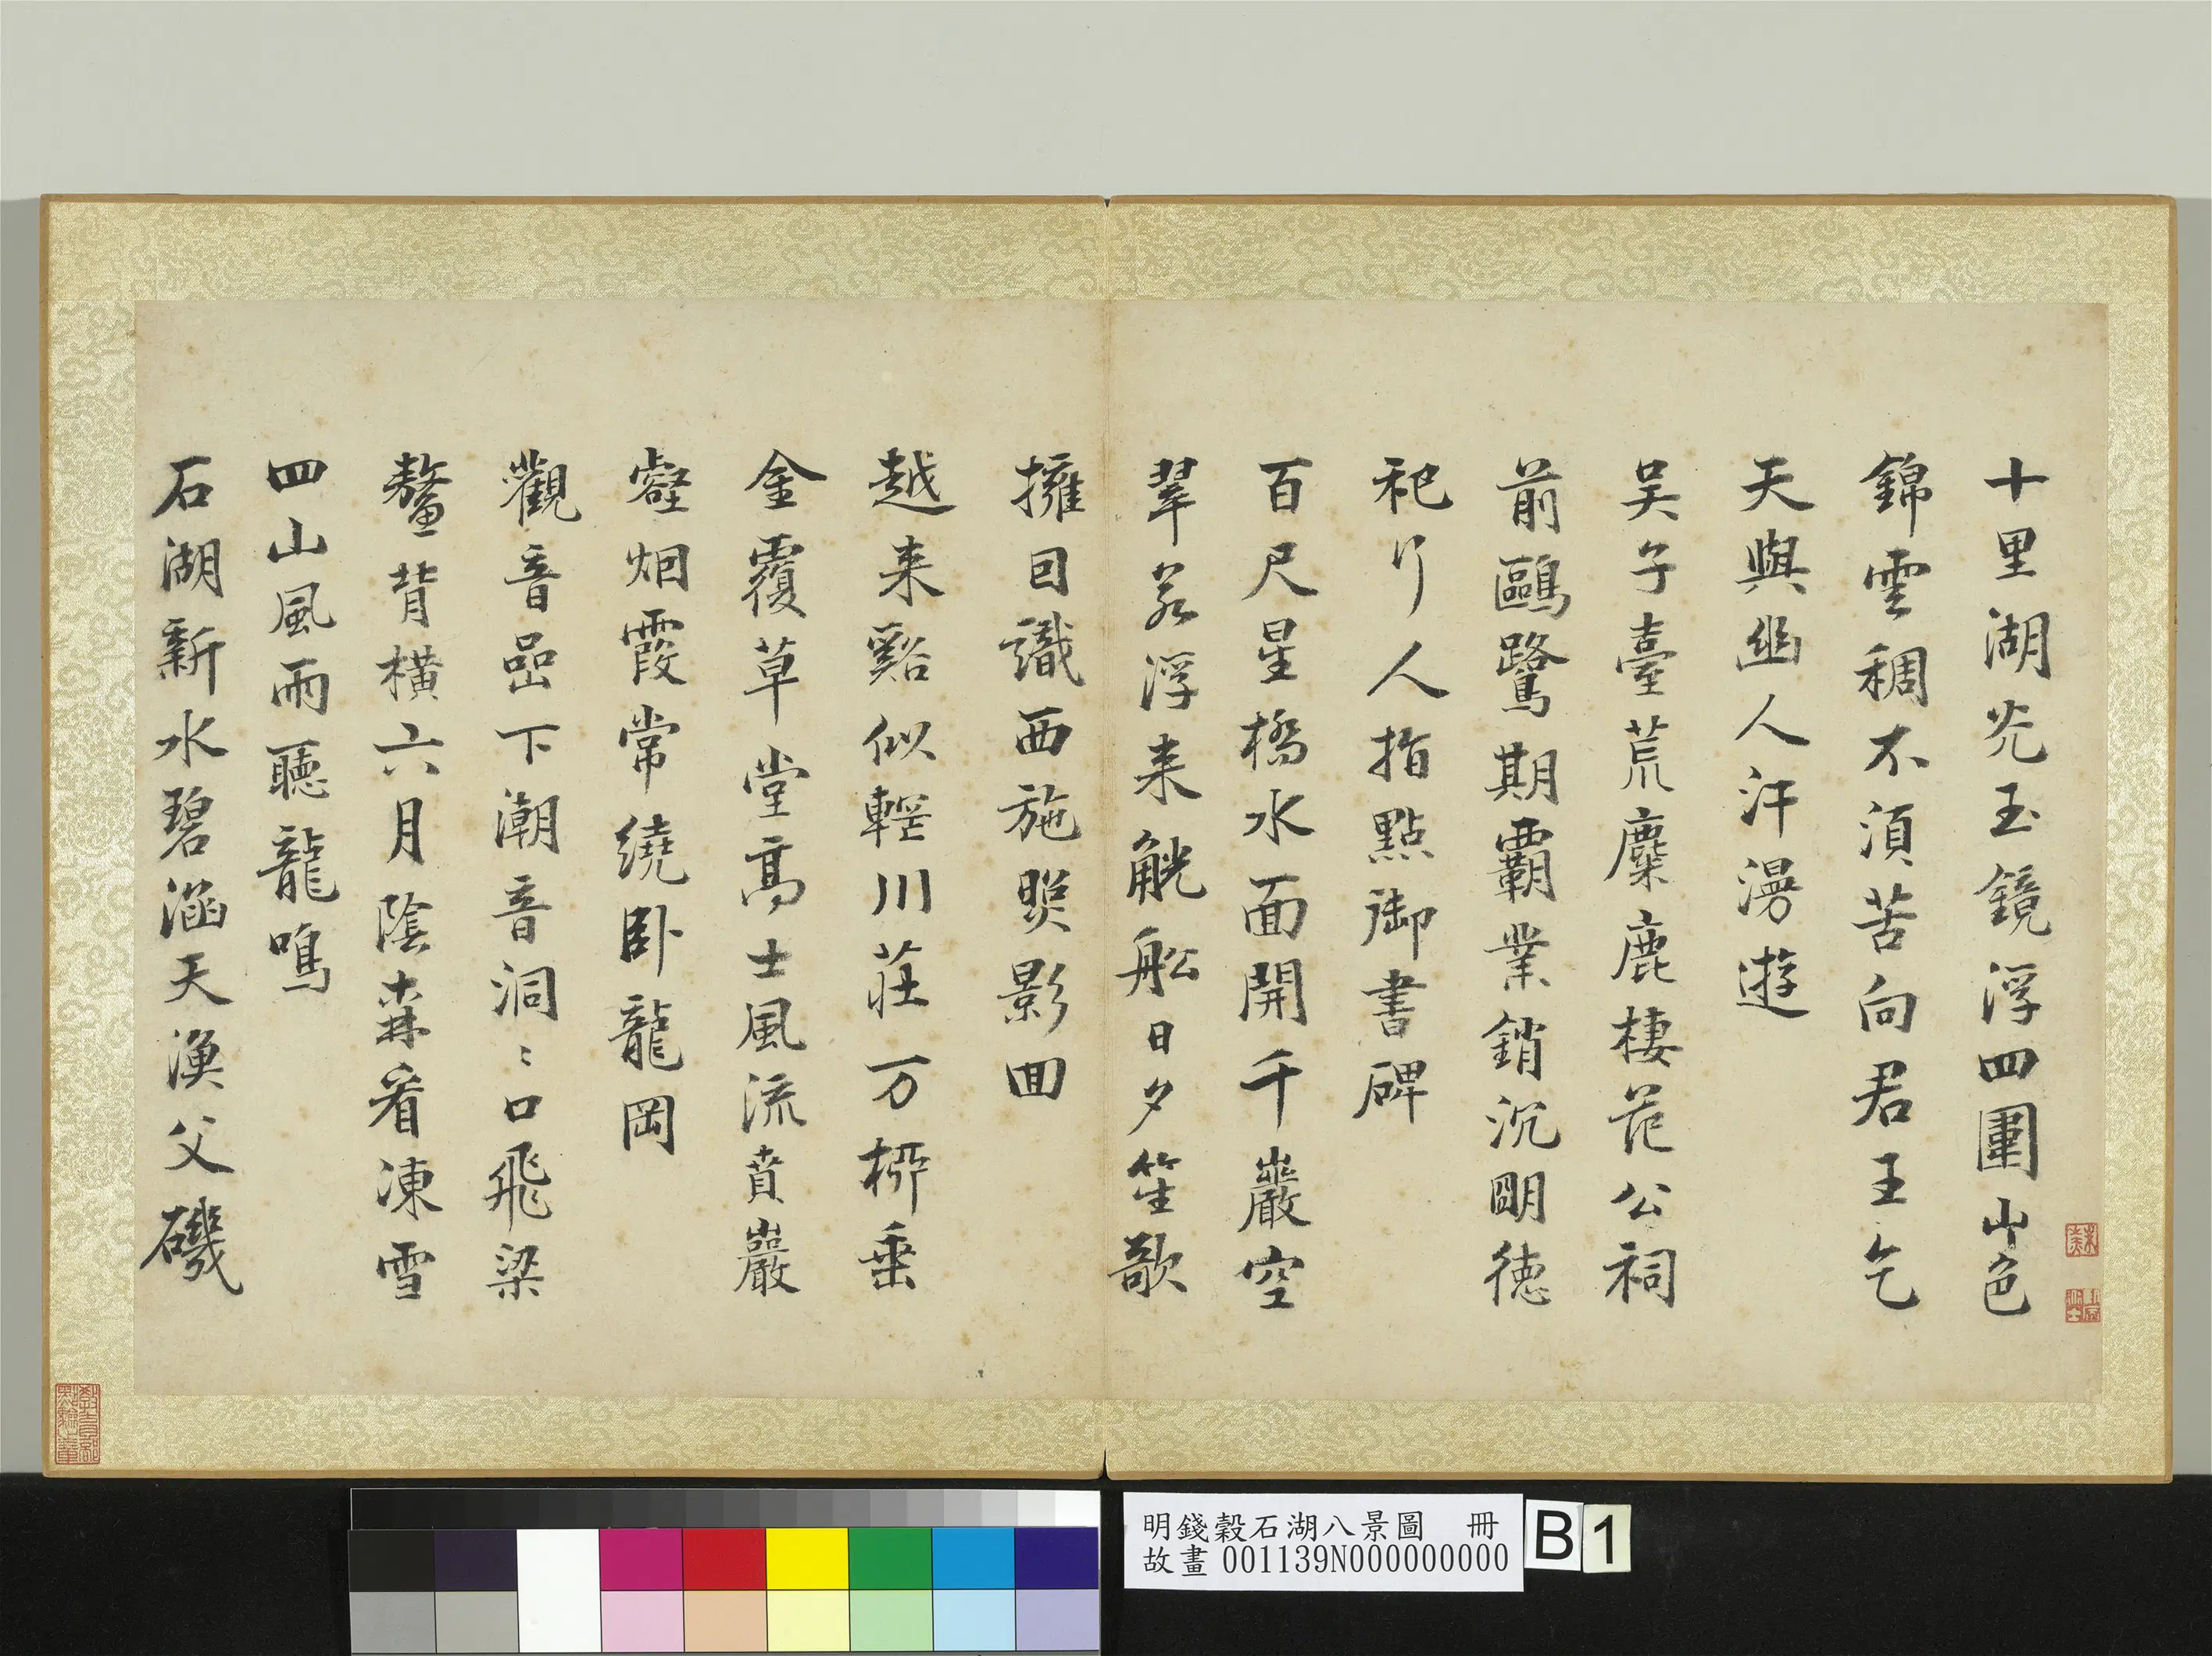 十里湖光玉鏡浮四圍山色
錦雲稠不須苦向君王乞
天與幽人汗漫遊
吳子臺荒麋鹿棲范公祠
前鷗鷺期霸業銷沉明德
祀行人指點御書碑
百尺星橋水面開千巖空
翠若浮来觥船日夕笙歌
擁回識西施照影回
越来谿似輕川莊万柳垂
金覆草堂高士風流賁巖
壑烟霞常繞卧龍岡
觀音嵒下潮音洞〻口飛梁
鰲背橫六月陰森看凍雪
四山風雨聽龍鳴
石湖新水碧涵天漁父磯
明錢穀石湖八景圖 冊
故畫 001139N000000000
B 1